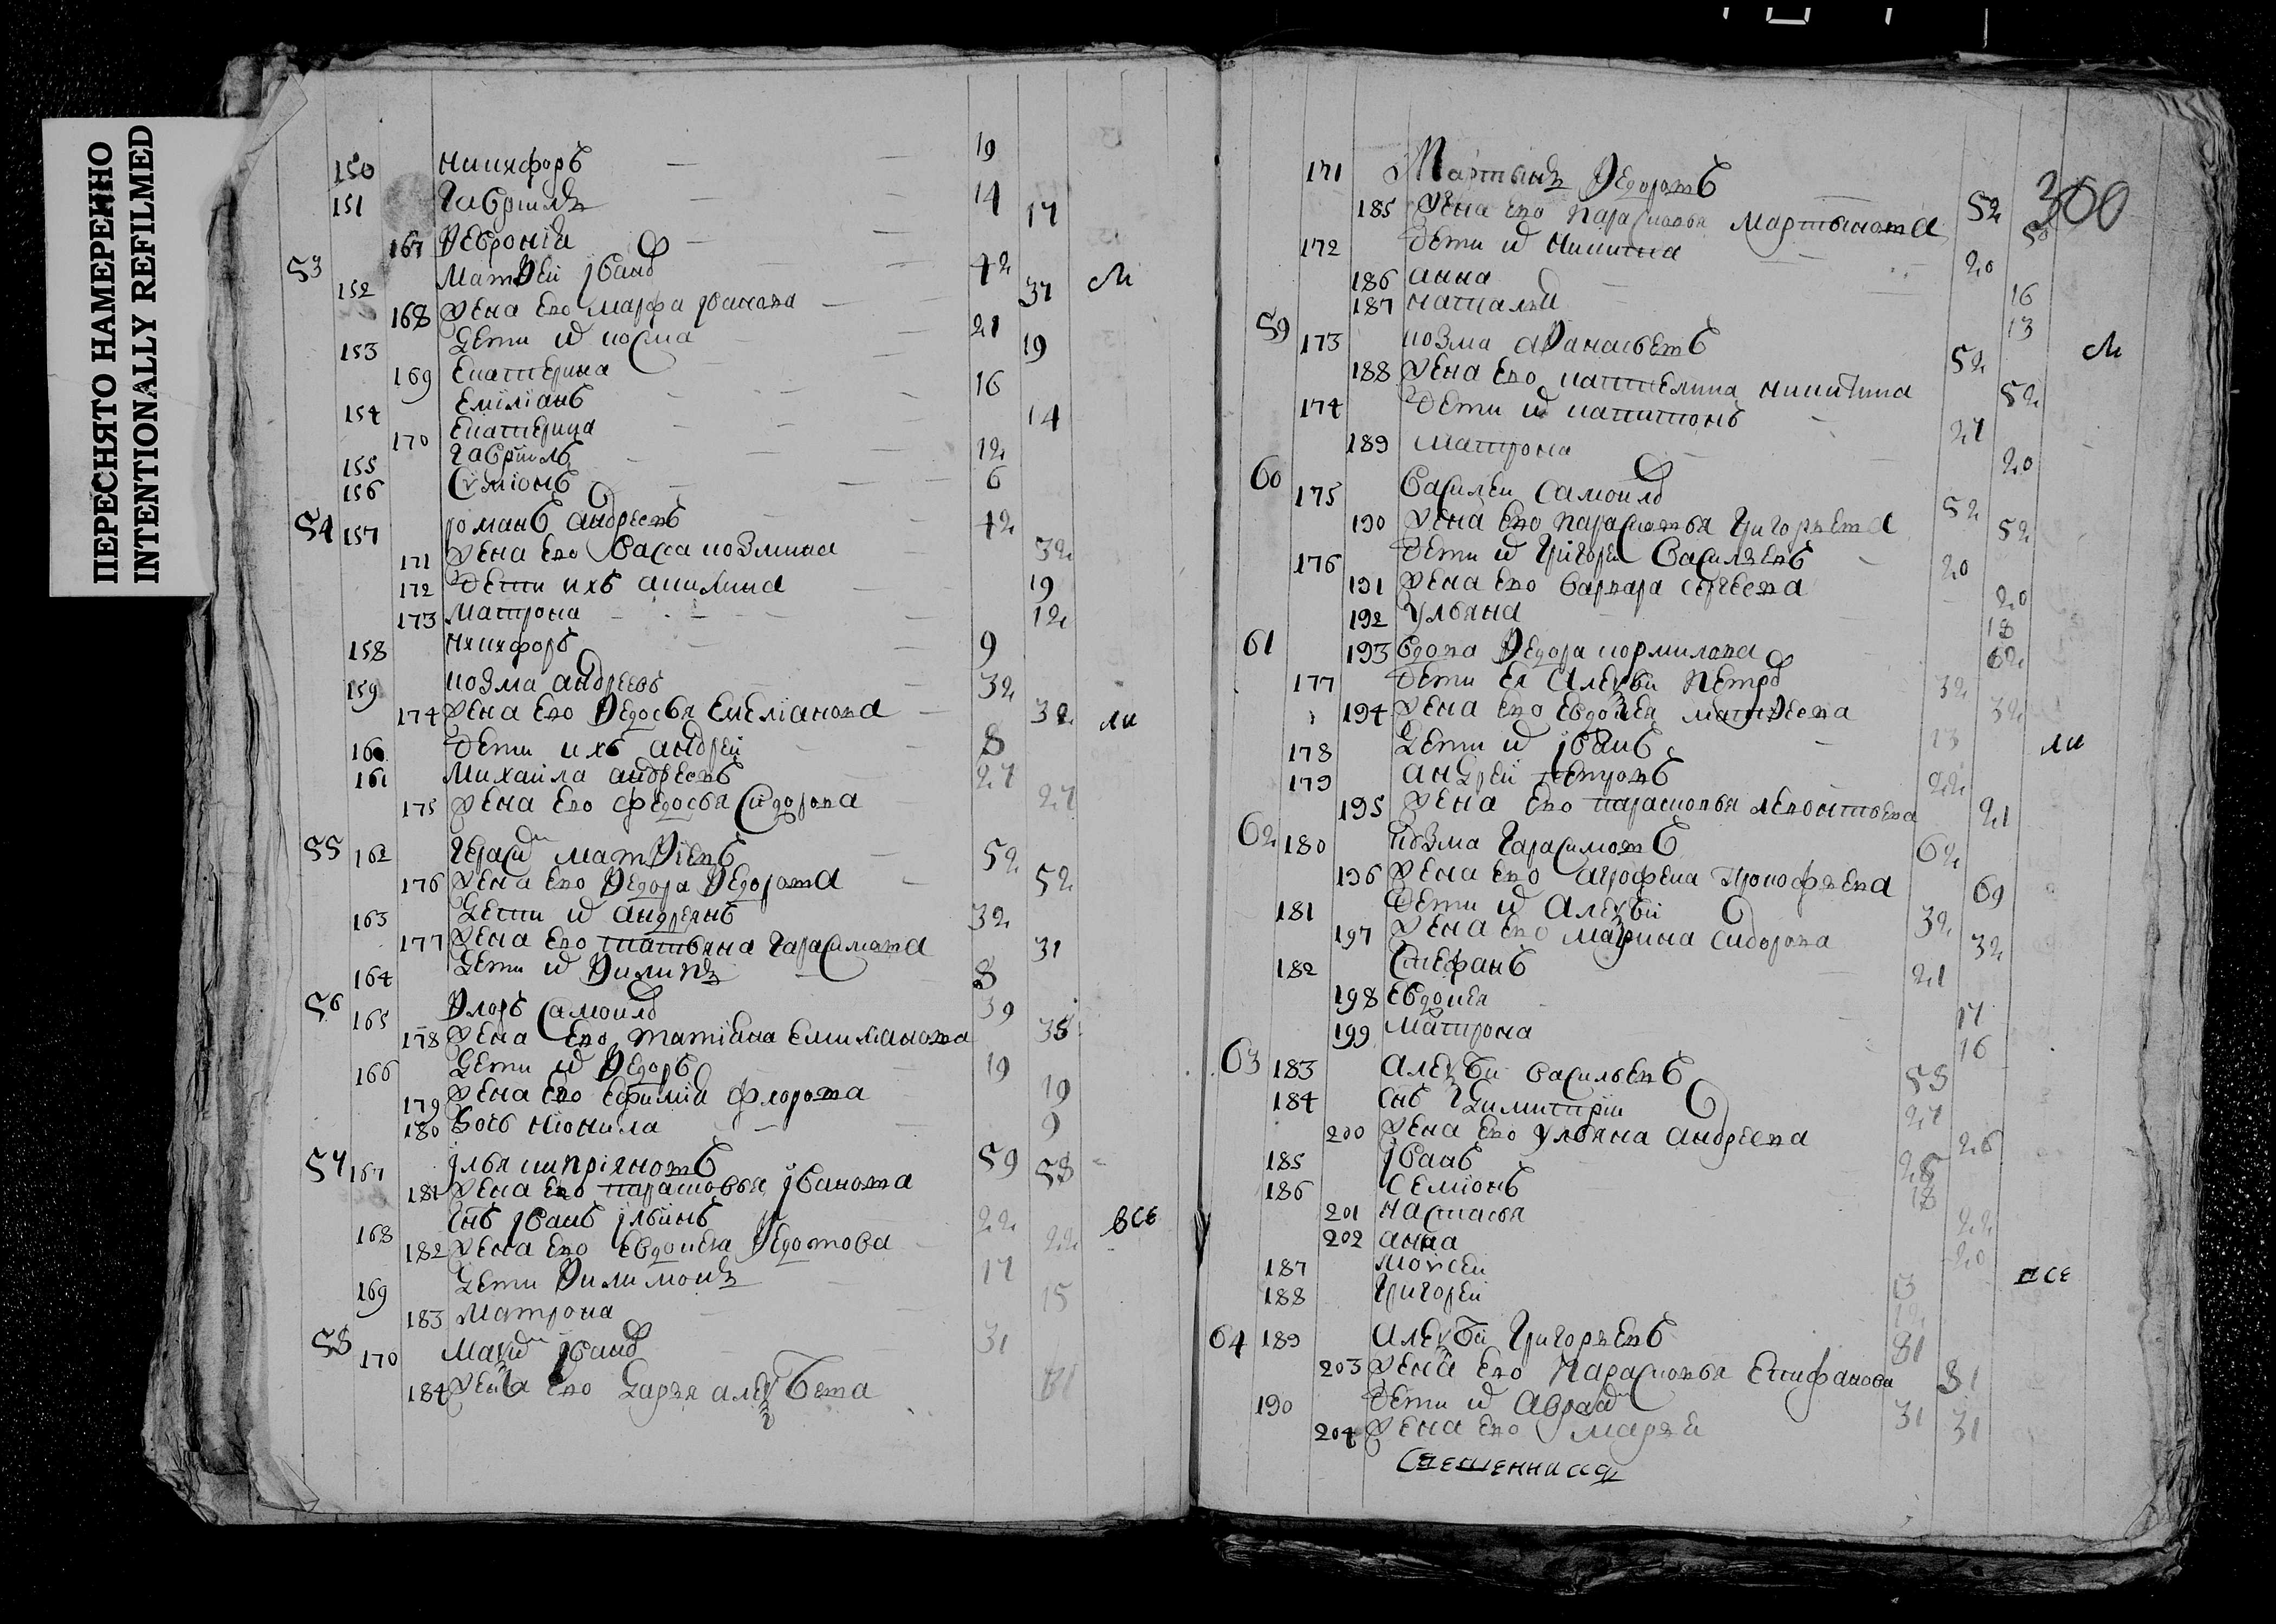 ПЕРЕСНЯТО НАМЕРЕННО
INTENTIONALLY REFILMED
150 Никифоръ 19
151 Гаврилъ 14
167 Ѳеврониа 17
53 152 Матѳей Иванъ 42
168 Жена ево Марфа Иванова 37
153 Дети ѿ Косма 21
169 Екатерина 19
154 Емілианъ 16
170 Екатерина 14
155 Гаврилъ 12
156 Сѵмионъ 6
54 157 Романъ Андреевъ 42
171 Жена ево Васса Козмина 32
172 Дети ихъ Акилина 19
173 Матрона 12
158 Никифоръ 9
159 Козма Андреевъ 32
174 Жена ево Ѳедосья Емеліанова 32
160 Дети ихъ Андрей 8
161 Михаила Андреевъ 27
175 Жена ево Федосья Сидорова 27
55 162 Герасим Матѳіевъ 52
176 Жена ево Ѳедора Ѳедорова 52
163 Дети ѿ Андреянъ 32
177 Жена ево Татьяна Гарасимова 31
164 Дети ѿ Ѳилипъ 8
56 165 Ѳлоръ Самойлъ 39
178 Жена ево Татіана Емилианова 38
166 Дети ѿ Ѳедоръ 19
179 Жена ево Ефимія Флорова 19
180 Дочь Неонила 9
57 167 Илья Киприяновъ 59
181 Жена ево Парасковья Иванова 58
168 Снъ Иванъ Ильинъ 22
182 Жена ево Евдокея Ѳедотова 22 все
169 Дети Ѳилимонъ 17
183 Матрона 15
58 170 Максим Иванъ 31
184 Жена ево Дарья Алексѣева 31
300
171 Мартынъ Ѳедоровъ 52
185 Жена ево Парасковья Мартынова 50
172 Дети ѿ Никита 20
186 Анна 16
187 Наталья 13
59 173 Козма Аѳанасьевъ 52
188 Жена ево Кателина Никитина 52
174 Дети ѿ Капитонъ 27
189 Матрона 20
60 175 Василей Самойлъ 52
190 Жена ево Парасковья Григорьева 52
176 Дети ѿ Григорей Васильевъ 20
191 Жена ево Варвара Сергеева 20
192 Ульяна 18
61 193 Вдова Ѳедора Кормилова 62
177 Дети ея Алексѣй Петръ 32
194 Жена ево Евдокея Матѳеева 32
178 Дети ѿ Иванъ 13
179 Андрей Петровъ 22
195 Жена ево Парасковья Леонтьева 21
62 180 Козма Гарасимовъ 62
196 Жена ево Агрофена Прокофьева 69
181 Дети ѿ Алексѣй 32
197 Жена ево Марина Сидорова 32
182 Стефанъ 21
198 Евдокея 17
199 Матрона 16
63 183 Алексѣй Васильевъ 58
184 Снъ Димитрій 27
200 Жена ево Ульяна Андреева 26
185 Иванъ 25
186 Семіонъ 18
201 Настасья 22
202 Анна 20
187 Моисей 13
188 Григорей 12 все
64 189 Алексѣй Григорьевъ 81
203 Жена ево Парасковья Епифанова 81
190 Дети ѿ Авраам 31
204 Жена ево Марья 31
Священникъ